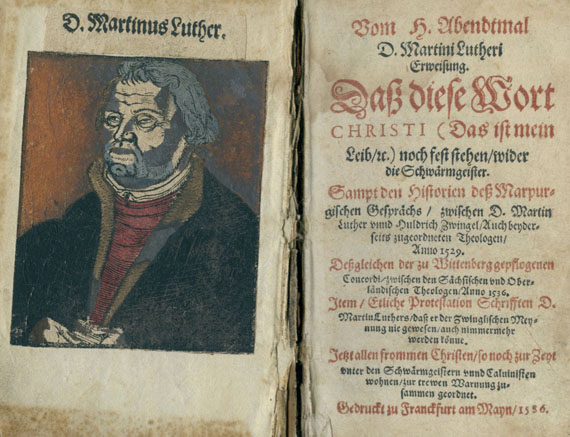 D. Martinus Luther.
Vom H. Abendtmal
D. Martini Lutheri
Erweisung.
Daß diese Wort
CHRISTI (Das ist mein
Leib/ꝛc.) noch fest stehen/wider
die Schwärmgeister.
Sampt den Historien deß Marpur-
gischen Gesprächs / zwischen D. Martin
Luther vnnd Huldrich Zwingel/Auch beyder-
seits zugeordneten Theologen/
Anno 1529.
Deßgleichen der zu Wittenberg gepflogenen
Concordi/zwischen den Sächsischen vnd Ober-
ländischen Theologen/Anno 1536.
Item / Etliche Protestation Schrifften D.
Martin Luthers/daß er der Zwinglischen Mey-
nung nie gewesen/auch nimmermehr
werden könne.
Jetzt allen frommen Christen/so noch zur Zeyt
vnter den Schwärmgeistern vnnd Caluinisten
wohnen/zur trewen Warnung zu-
sammen geordnet.
Gedruckt zu Franckfurt am Mayn/1586.